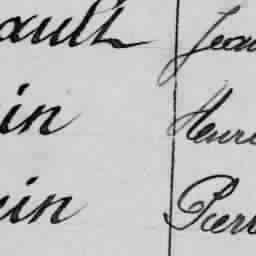 ault Jean
in Henri
in Pierr